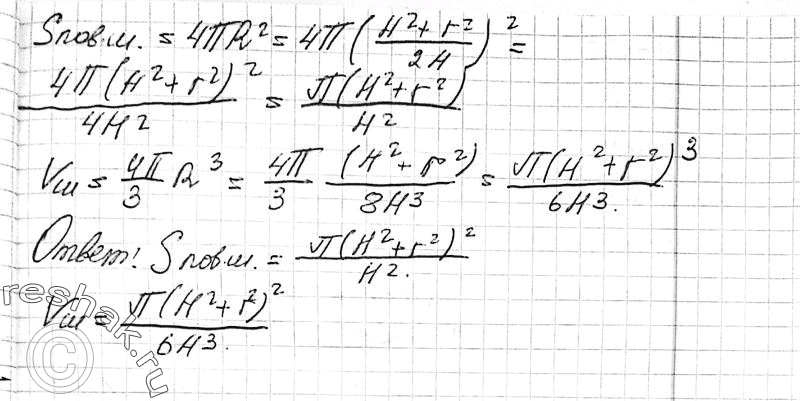 Sпов.ш. = 4πR² = 4π((H²+r²)/2H)² =
4π(H²+r²)²/4H² = π(H²+r²)/H²
Vш = 4π/3 R³ = 4π/3 (H²+r²)/8H3 = π(H²+r²)³/6H3.
Ответ! Sпов.ш. = π(H²+r²)²/H².
Vш = π(H²+r²)²/6H3.
reshak.ru
©